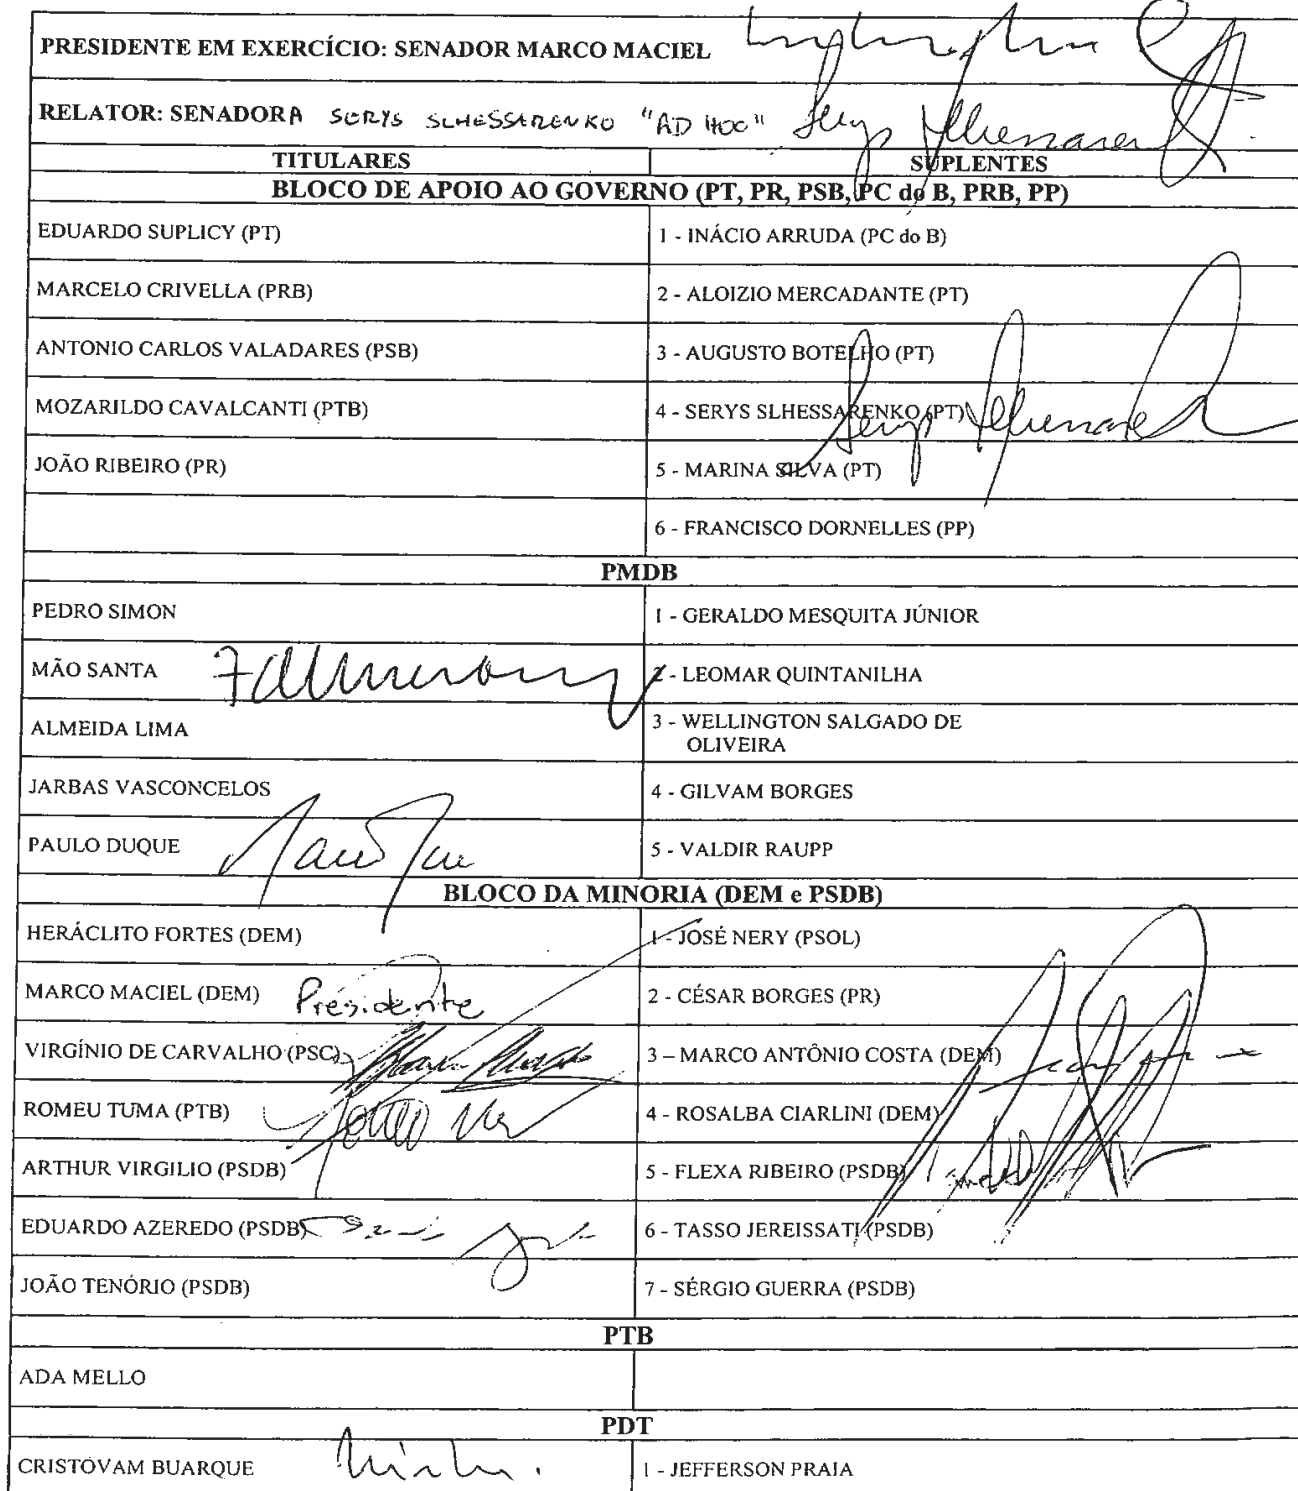 PRESIDENTE EM EXERCÍCIO: SENADOR MARCO MACIEL
RELATOR: SENADORA SERYS SLHESSARENKO "AD HOC" Serys Slhessarenko
TITULARES SUPLENTES
BLOCO DE APOIO AO GOVERNO (PT, PR, PSB, PC do B, PRB, PP)
EDUARDO SUPLICY (PT) 1 - INÁCIO ARRUDA (PC do B)
MARCELO CRIVELLA (PRB) 2 - ALOIZIO MERCADANTE (PT)
ANTONIO CARLOS VALADARES (PSB) 3 - AUGUSTO BOTELHO (PT)
MOZARILDO CAVALCANTI (PTB) 4 - SERYS SLHESSARENKO (PT) Serys Slhessarenko
JOÃO RIBEIRO (PR) 5 - MARINA SILVA (PT)
6 - FRANCISCO DORNELLES (PP)
PMDB
PEDRO SIMON 1 - GERALDO MESQUITA JÚNIOR
MÃO SANTA 2 - LEOMAR QUINTANILHA
ALMEIDA LIMA 3 - WELLINGTON SALGADO DE
OLIVEIRA
JARBAS VASCONCELOS 4 - GILVAM BORGES
PAULO DUQUE 5 - VALDIR RAUPP
BLOCO DA MINORIA (DEM e PSDB)
HERÁCLITO FORTES (DEM) 1 - JOSÉ NERY (PSOL)
MARCO MACIEL (DEM) Presidente 2 - CÉSAR BORGES (PR)
VIRGÍNIO DE CARVALHO (PSC) 3 – MARCO ANTÔNIO COSTA (DEM)
ROMEU TUMA (PTB) 4 - ROSALBA CIARLINI (DEM)
ARTHUR VIRGILIO (PSDB) 5 - FLEXA RIBEIRO (PSDB)
EDUARDO AZEREDO (PSDB) 6 - TASSO JEREISSATI (PSDB)
JOÃO TENÓRIO (PSDB) 7 - SÉRGIO GUERRA (PSDB)
PTB
ADA MELLO
PDT
CRISTOVAM BUARQUE 1 - JEFFERSON PRAIA